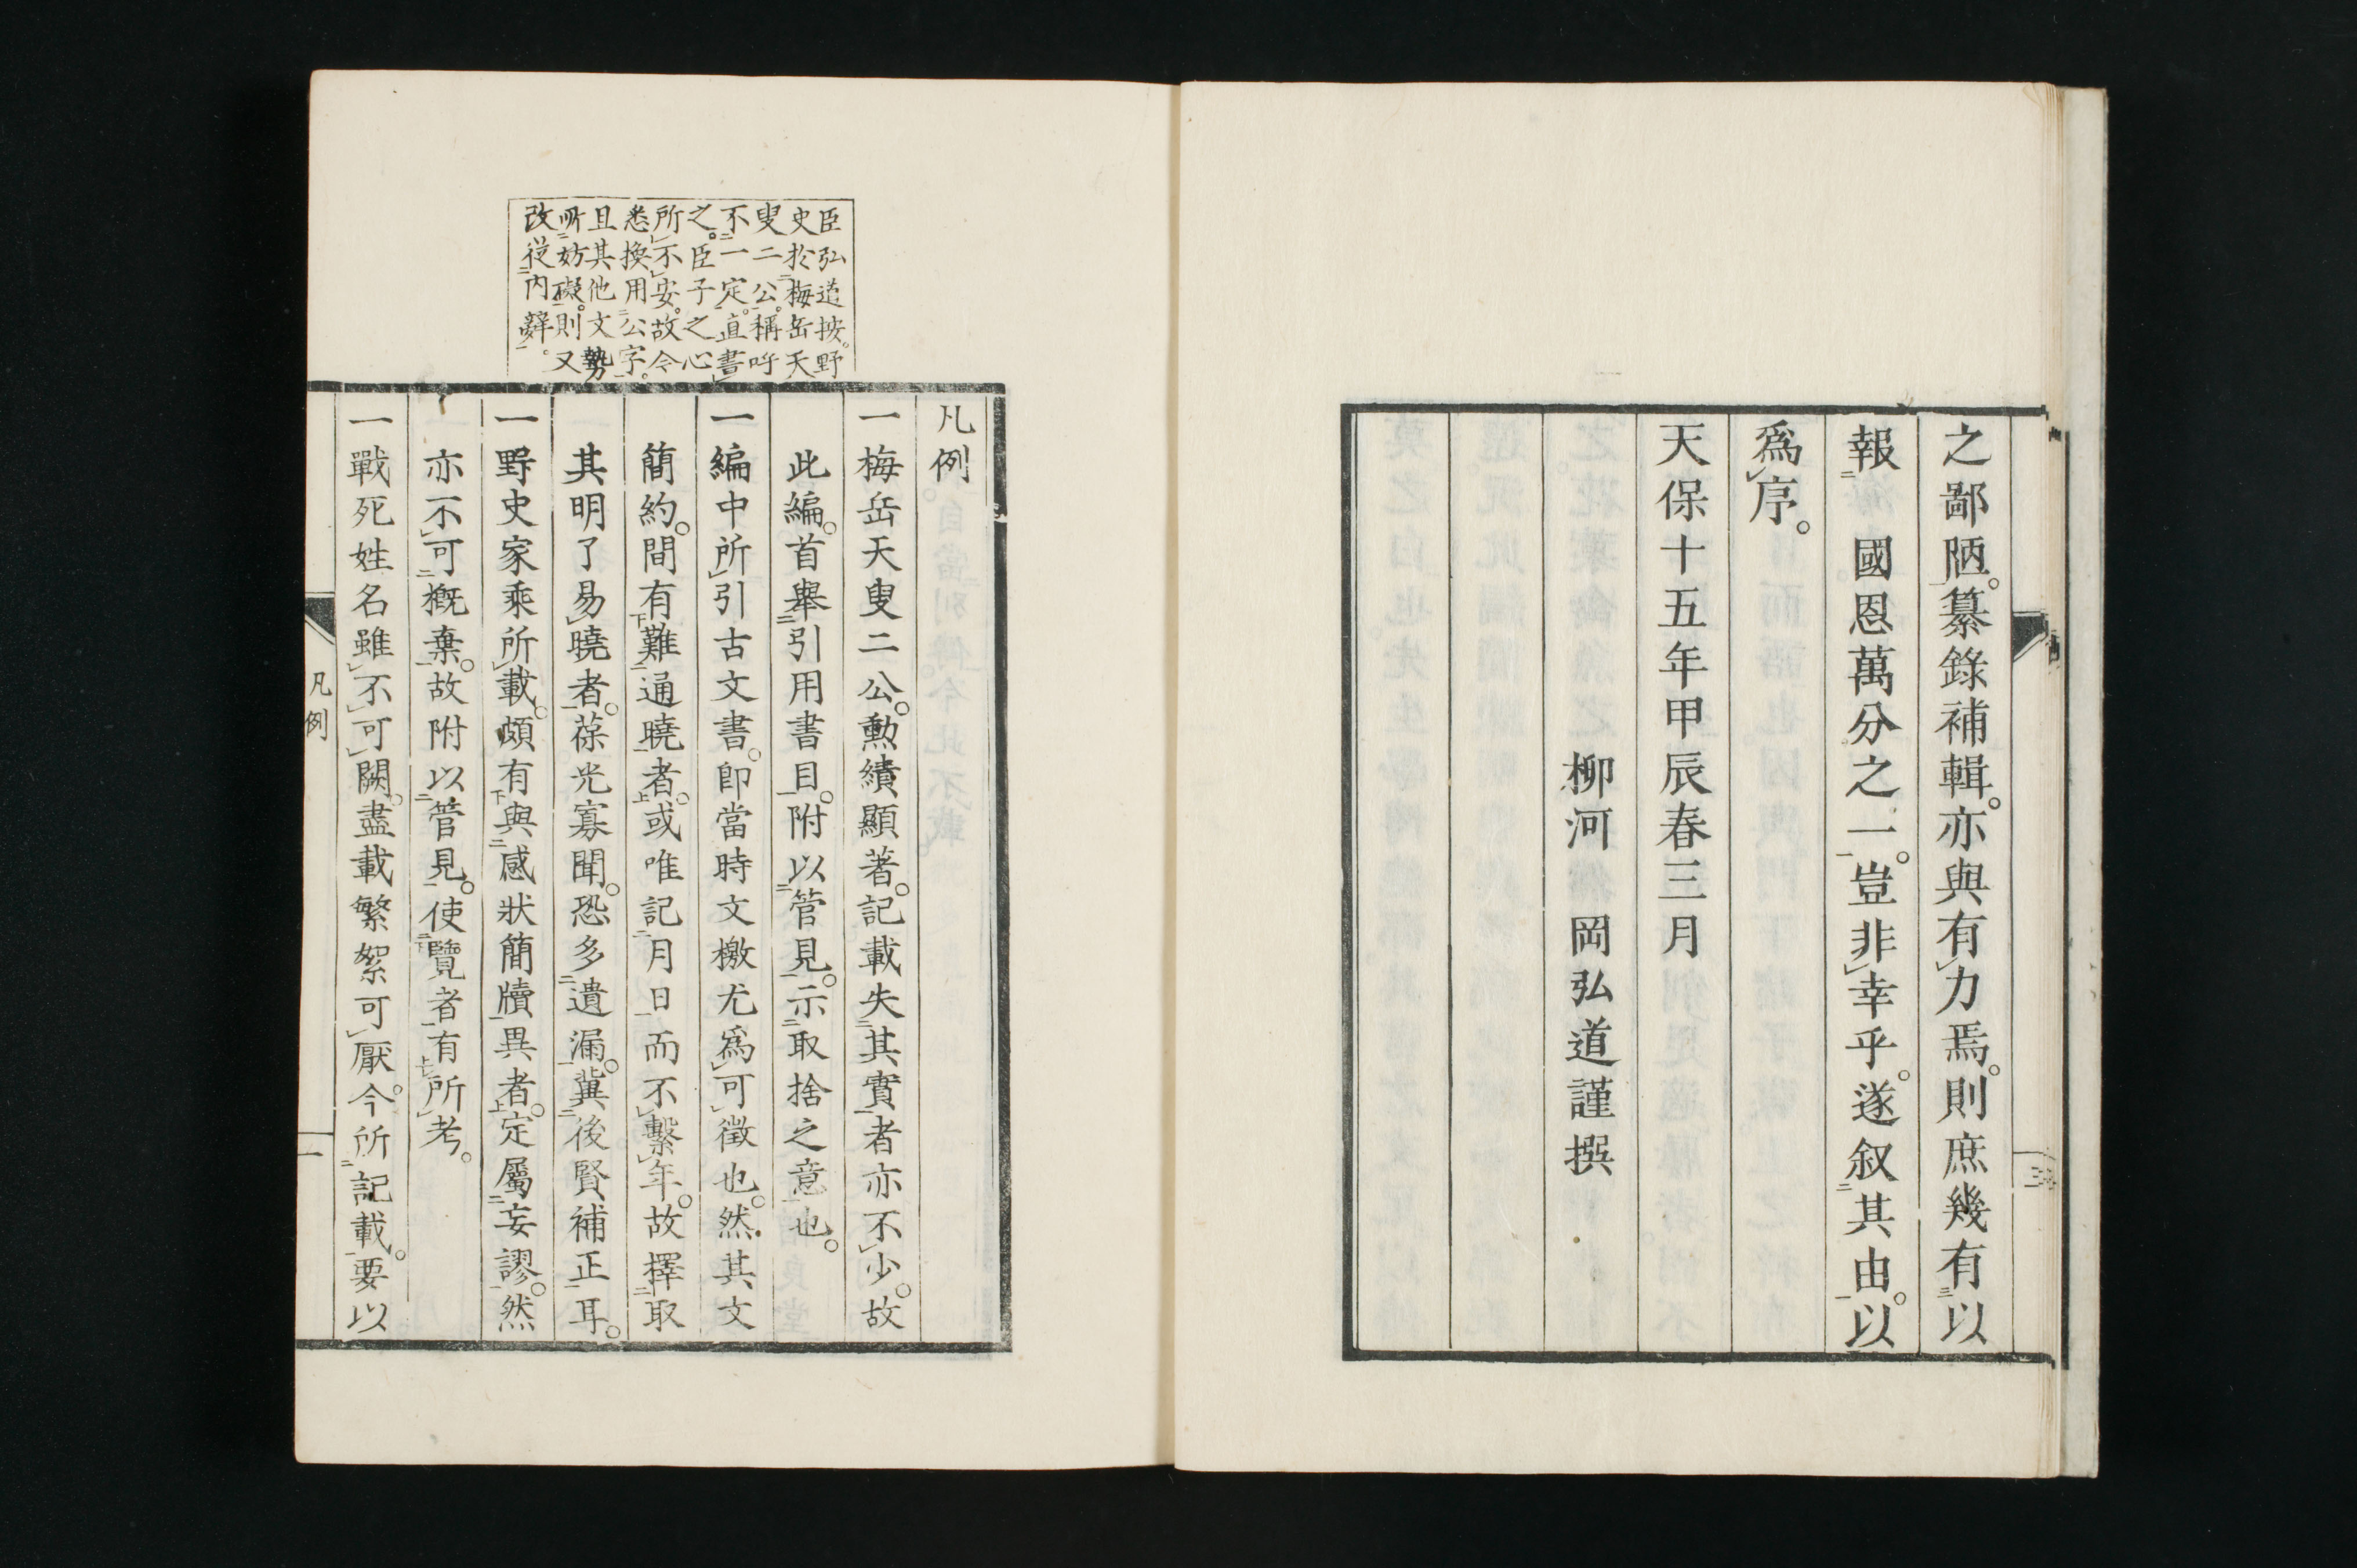 之鄙陋。纂錄補輯。亦與有力焉。則庶幾有以
報　國恩萬分之一。豈非幸乎。遂叙其由。以
爲序。
天保十五年甲辰春三月
柳河　岡弘道謹撰
臣弘道按。野
史於梅岳天
叟二公。稱呼
不一定。直書
之。臣子之心
所不安。故今
悉換用公字。
且其他文勢
所妨礙。則又
改從內辭。
凡例
一梅岳天叟二公。勲績顯著。記載失其實者亦不少。故
此編。首舉引用書目。附以管見。示取捨之意也。
一編中所引古文書。卽當時文檄尤爲可徵也。然其文
簡約。間有難通曉者。或唯記月日而不繫年。故擇取
其明了易曉者。葆光寡聞。恐多遺漏。冀後賢補正耳。
一野史家乘所載。頗有與感狀簡牘異者。定屬妄謬。然
亦不可概棄。故附以管見。使覽者有所考。
一戰死姓名雖不可闕。盡載繁絮可厭。今所記載。要以
凡例
一